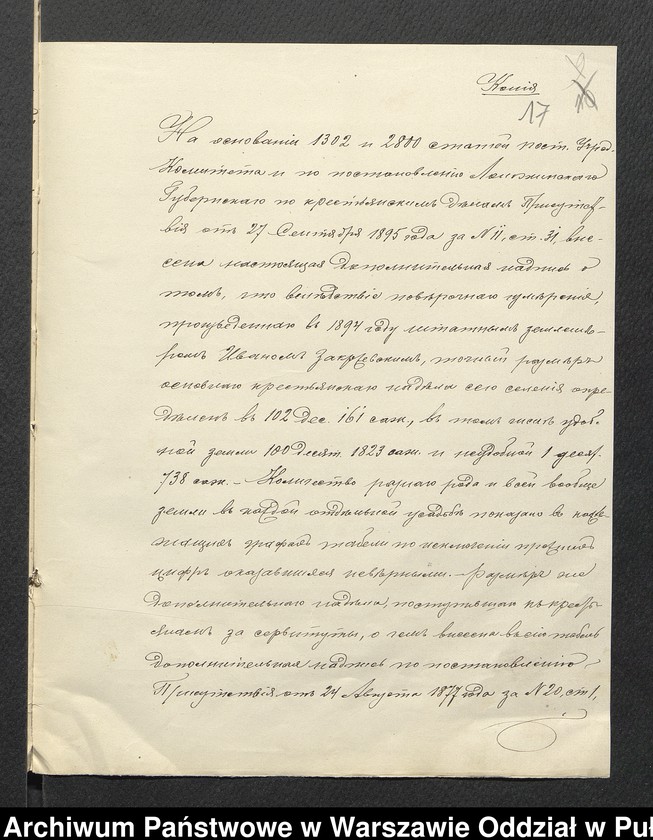 Копія
17
На основаніи 1302 и 2800 статей пост. Учред.
Комитета и по постановленію Ломжинскаго
Губернскаго по крестьянскимъ дѣламъ Присутст-
вія отъ 27 Сентября 1895 года за N 11, ст. 31, вне-
сена настоящая дополнительная надпись о
томъ, что вслѣдствіе повѣрочнаго измѣренія,
произведеннаго въ 1894 году штатнымъ землемѣ-
ромъ Иваномъ Закржевскимъ, точный размѣръ
основнаго крестьянскаго надѣла сего селенія опре-
дѣленъ въ 102 дес. 161 саж., въ томъ числѣ удоб-
ной земли 100 десят. 1823 саж. и неудобной 1 десят.
738 саж. – Количество разнаго рода и всей вообще
земли въ каждой отдѣльной усадьбѣ показано въ надле-
жащихъ графахъ табели по исключеніи прежнихъ
цифръ оказавшихся невѣрными. – Размѣръ же
дополнительнаго надѣла, поступившаго къ кресть-
янамъ за сервитуты, о чемъ внесена въ сію табель
дополнительная надпись по постановленію
Присутствія отъ 24 Августа 1877 года за N 20, ст 1,
Archiwum Państwowe w Warszawie Oddział w Puł